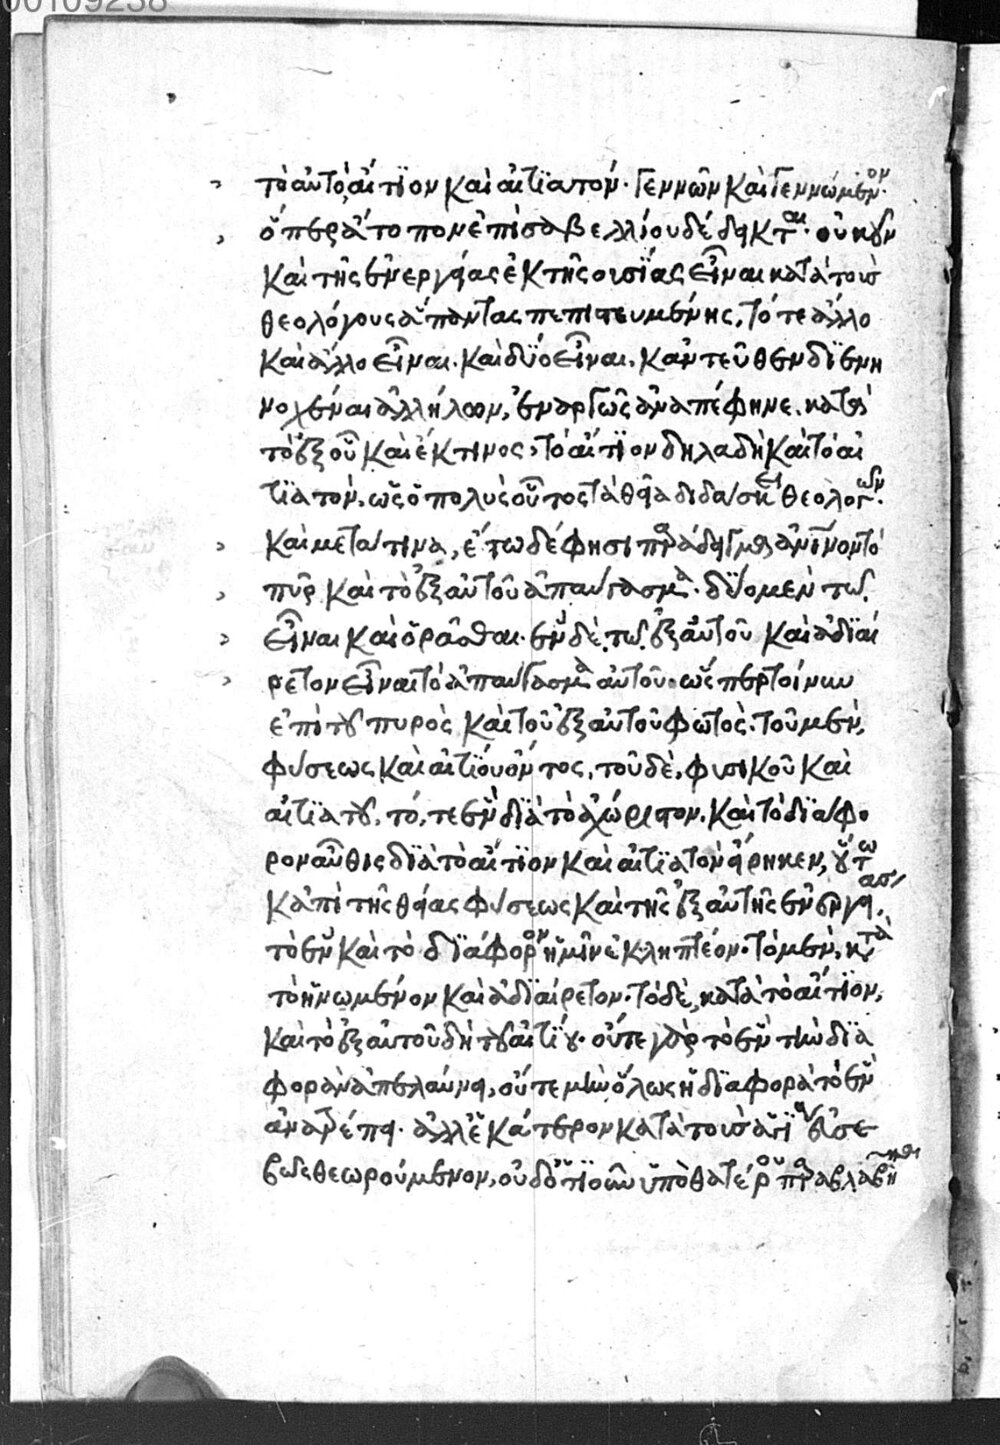 00109238
τὸ αὐτὸ, αἴτιον καὶ αἰτιατόν· γεννῶν καὶ γεννώμενον·
ὅπερ ἄτοπον ἐπὶ σαβελλίου δέδεικται· οὐκοῦν
καὶ τῆς ἐνεργείας ἐκ τῆς οὐσίας εἶναι κατὰ τοὺς
θεολόγους ἅπαντας πεπιστευμένης, τό τε ἄλλο
καὶ ἄλλο εἶναι· καὶ δύο εἶναι· κἀντεῦθεν διενη
νοχέναι ἀλλήλων, ἐναργῶς ἀναπέφηνε· κατὰ
τὸ ἐξ οὗ καὶ ἔκ τινος, τὸ αἴτιον δηλαδὴ καὶ τὸ αἰ
τιατόν. ὡς ὁ πολὺς οὗτος τὰ θεῖα διδάσκει θεολόγων·
καὶ μετά τινα, ἔστω δέ φησι παράδειγμα
πῦρ καὶ τὸ ἐξ αὐτοῦ ἀπαύγασμα· δύο μὲν τῷ
εἶναι καὶ ὁρᾶσθαι· ἓν δὲ τῷ ἐξ αὐτοῦ καὶ ἀδιαί
ρετον εἶναι τὸ ἀπαύγασμα αὐτοῦ· ὥσπερ τοίνυν
ἐπὶ τοῦ πυρὸς καὶ τοῦ ἐξ αὐτοῦ φωτὸς· τοῦ μὲν,
φύσεως καὶ αἰτίου ὄντος, τοῦ δὲ, φυσικοῦ καὶ
αἰτιατοῦ, τό, τε ἓν διὰ τὸ ἀχώριστον· καὶ τὸ διάφο
ρον αὖθις διὰ τὸ αἴτιον καὶ αἰτιατὸν εἴρηκεν, οὕτω
κἀπὶ τῆς θείας φύσεως καὶ τῆς ἐξ αὐτῆς ἐνεργείας,
τὸ ἓν καὶ τὸ διάφορον ἡμῖν ἐκληπτέον· τὸ μὲν, κατὰ
τὸ ἡνωμένον καὶ ἀδιαίρετον· τὸ δὲ, κατὰ τὸ αἴτιον,
καὶ τὸ ἐξ αὐτοῦ δὴ τοῦ αἰτίου· οὔτε γὰρ τὸ ἓν τὴν δια
φορὰν ἀπελαύνει, οὔτε μὴν ὅλως ἡ διαφορὰ τὸ ἓν
ἀνατρέπει· ἀλλ' ἑκάτερον κατὰ τοὺς εὐσε
βῶς θεωρούμενον, οὐδοτιοῦν ὑπὸ θατέρου παραβλαβήσεται